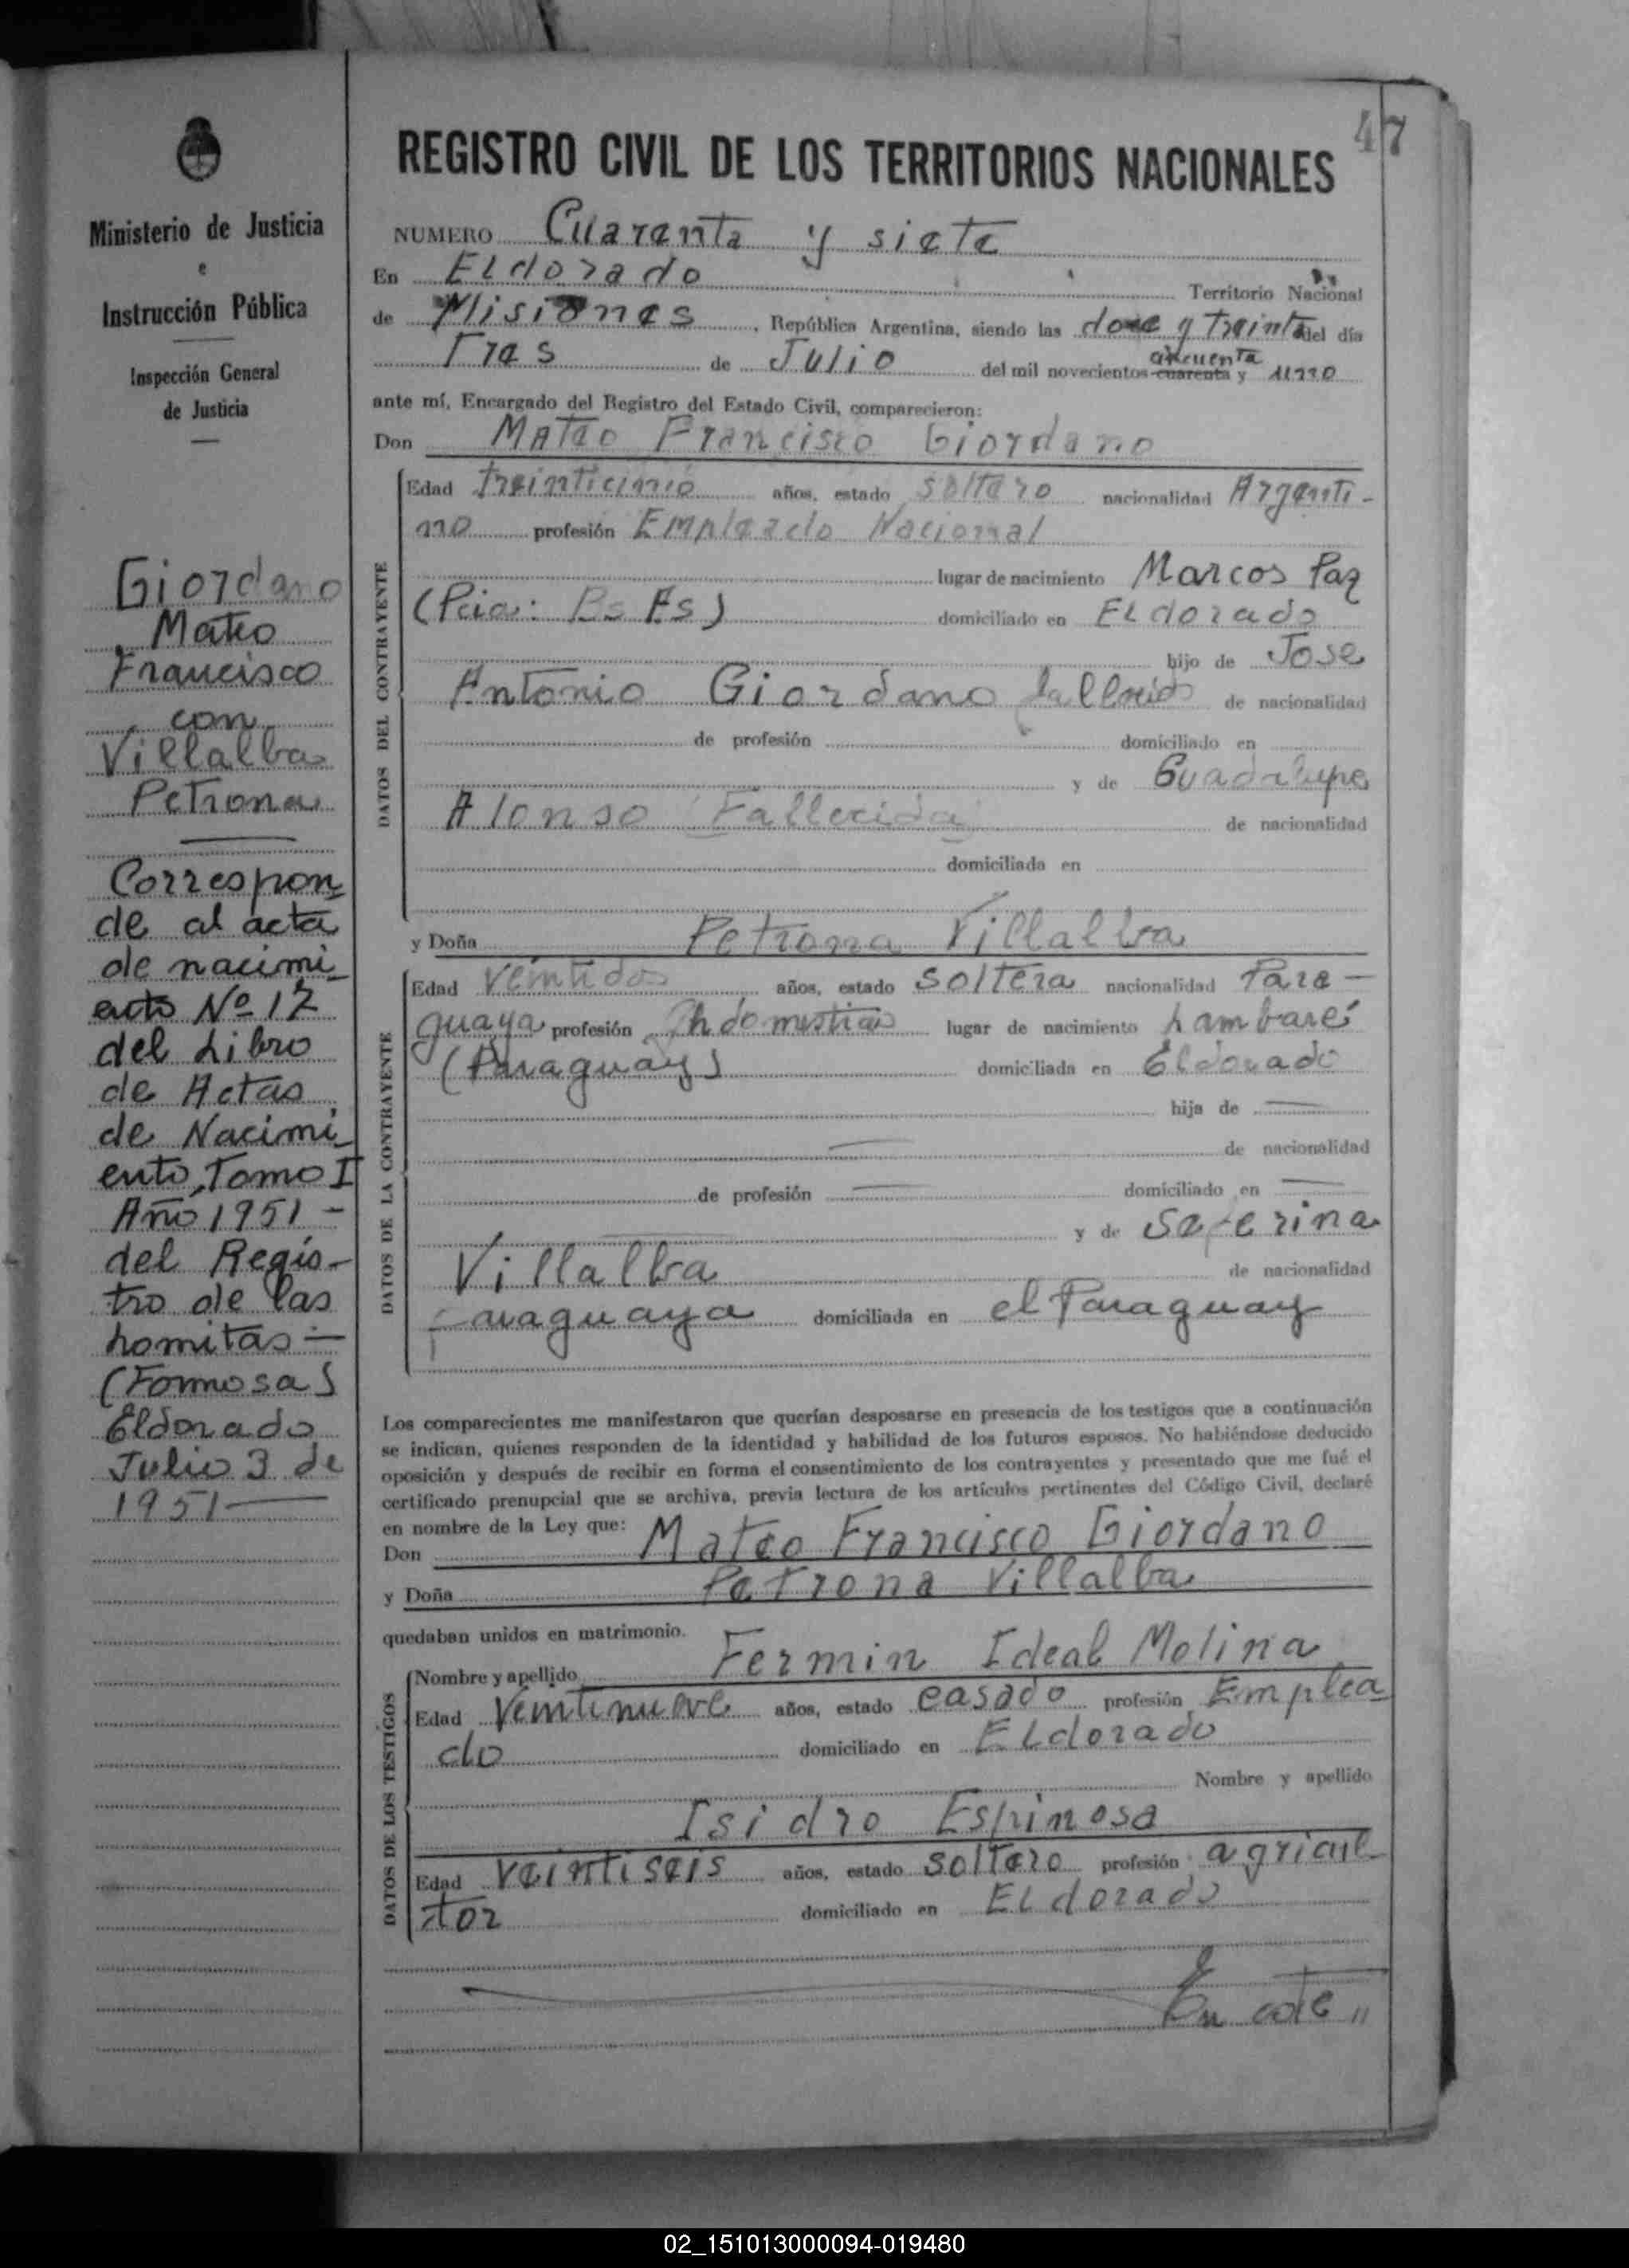 47
Ministerio de Justicia
e
Instrucción Pública
Inspección General
de Justicia
Giordano
Mateo
Francisco
con
Villalba
Petrona
Correspon
de al acta
de nacimi
ento Nº 12
del Libro
de Actas
de Nacimi
ento, Tomo I
Año 1951 -
del Regis-
tro de las
Lomitas -
(Formosa)
Eldorado
Julio 3 de
1951
REGISTRO CIVIL DE LOS TERRITORIOS NACIONALES
NUMERO Cuarenta y siete
En Eldorado Territorio Nacional
de Misiones, República Argentina, siendo las doce y treinta del día
Tres de Julio del mil novecientos cuarenta cincuenta y uno
ante mí, Encargado del Registro del Estado Civil, comparecieron:
Don Mateo Francisco Giordano
DATOS DEL CONTRAYENTE
Edad años, estado soltero nacionalidad Argenti-
no profesión Empleado Nacional
lugar de nacimiento Marcos Paz
(Pcia: Bs As) domiciliado en Eldorado
hijo de Jose
Antonio Giordano fallecido de nacionalidad
de profesión domiciliado en
y de Guadalupe
Alonso (Fallecida) de nacionalidad
domiciliada en
y Doña Petrona Villalba
DATOS DE LA CONTRAYENTE
Edad Veintidos años, estado soltera nacionalidad Para-
guaya profesión domestica lugar de nacimiento Lambaré
(Paraguay) domiciliada en Eldorado
hija de
de nacionalidad
de profesión domiciliado en
y de Saferina
Villalba de nacionalidad
Paraguaya domiciliada en el Paraguay
Los comparecientes me manifestaron que querían desposarse en presencia de los testigos que a continuación
se indican, quienes responden de la identidad y habilidad de los futuros esposos. No habiéndose deducido
oposición y después de recibir en forma el consentimiento de los contrayentes y presentado que me fué el
certificado prenupcial que se archiva, previa lectura de los artículos pertinentes del Código Civil, declaré
en nombre de la Ley que:
Don Mateo Francisco Giordano
y Doña Petrona Villalba
quedaban unidos en matrimonio.
DATOS DE LOS TESTIGOS
Nombre y apellido Fermin Ideal Molina
Edad Veintinueve años, estado casado profesión Emplea
do domiciliado en Eldorado
Nombre y apellido
Isidro Espinosa
Edad veintiseis años, estado soltero profesión agricul
tor domiciliado en Eldorado
En este "
02_151013000094-019480